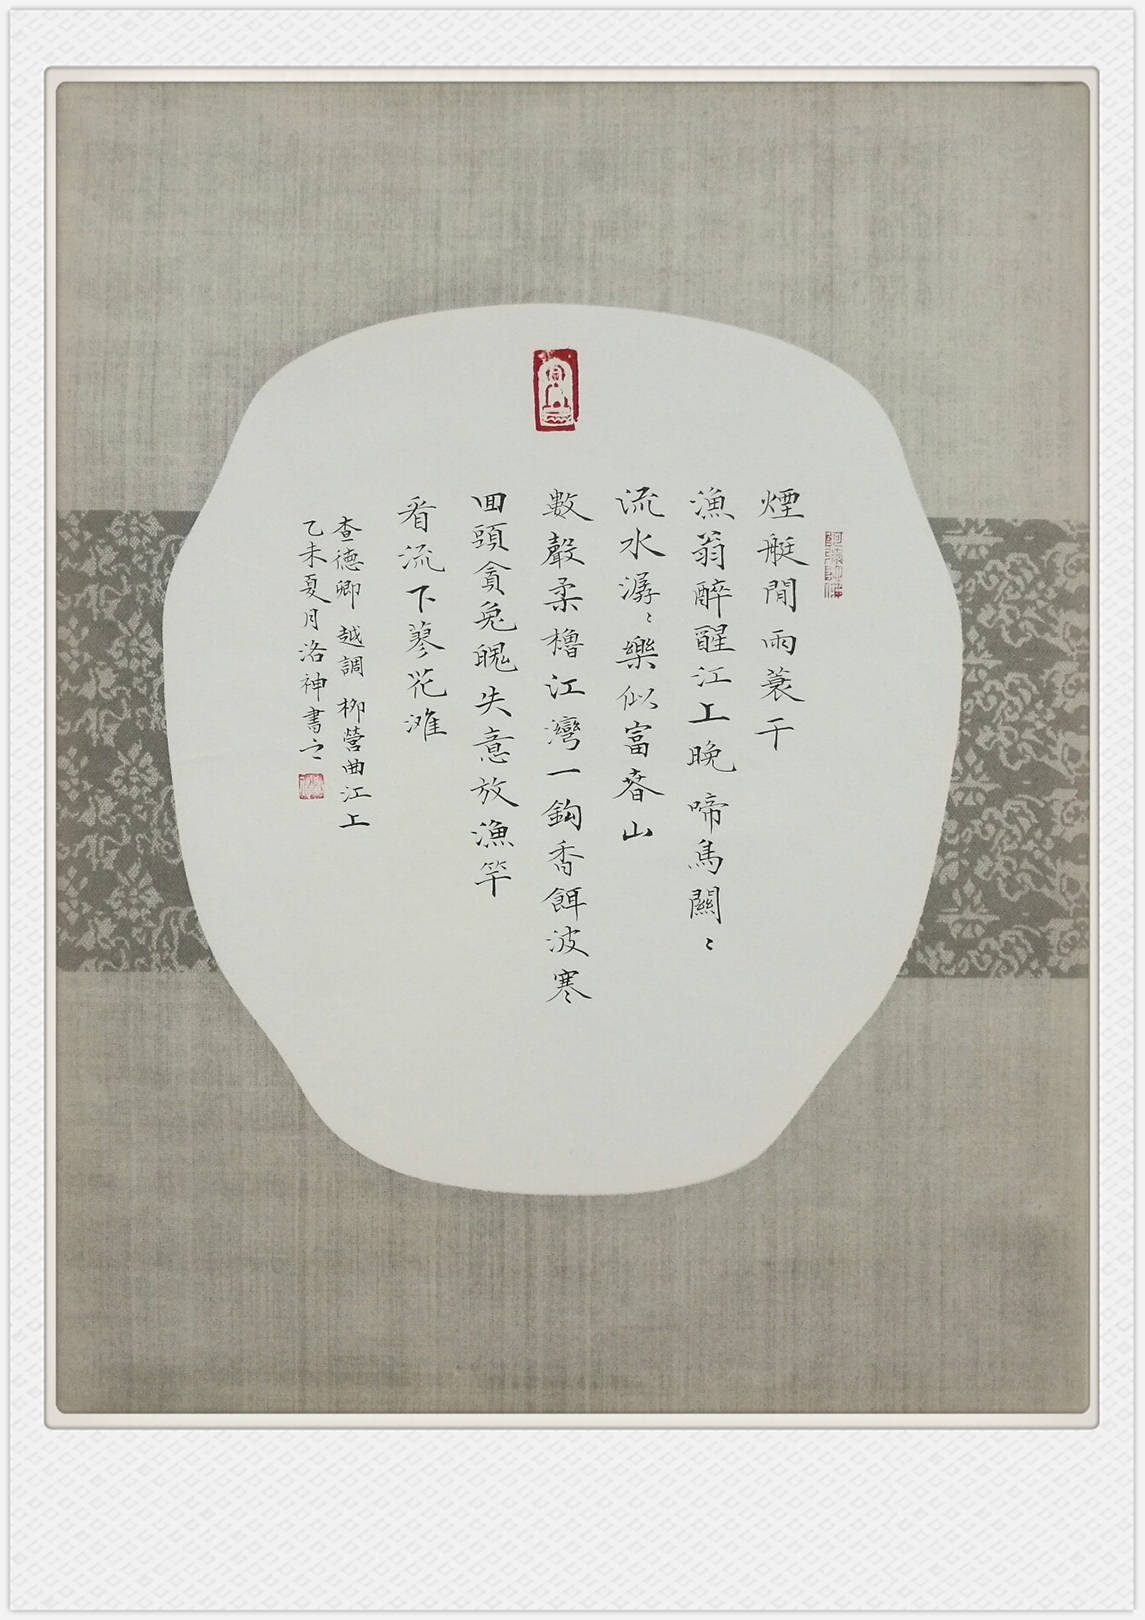 煙艇閒雨蓑干
漁翁醉醒江上晚啼鳥關〻
流水潺〻樂似富春山
數聲柔櫓江灣一鈎香餌波寒
回頭貪兔魄失意放漁竿
看流下蓼花灘
查德卿 越調 柳營曲江上
乙未夏月洛神書之